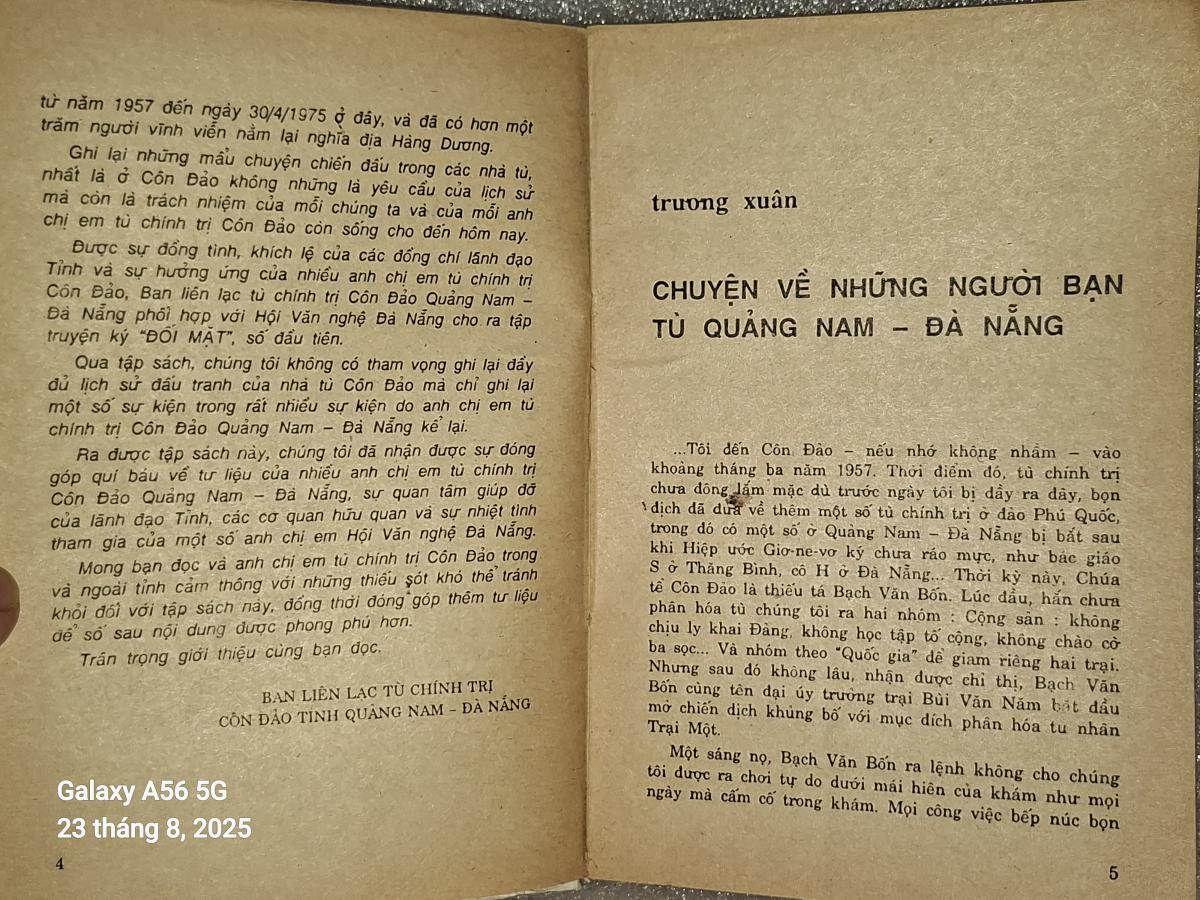 từ năm 1957 đến ngày 30/4/1975 ở đây, và đã có hơn một
trăm người vĩnh viễn nằm lại nghĩa địa Hàng Dương.
Ghi lại những mẩu chuyện chiến đấu trong các nhà tù,
nhất là ở Côn Đảo không những là yêu cầu của lịch sử
mà còn là trách nhiệm của mỗi chúng ta và của mỗi anh
chị em tù chính trị Côn Đảo còn sống cho đến hôm nay.
Được sự đồng tình, khích lệ của các đồng chí lãnh đạo
Tỉnh và sự hưởng ứng của nhiều anh chị em tù chính trị
Côn Đảo, Ban liên lạc tù chính trị Côn Đảo Quảng Nam –
Đà Nẵng phối hợp với Hội Văn nghệ Đà Nẵng cho ra tập
truyện ký "ĐỐI MẶT", số đầu tiên.
Qua tập sách, chúng tôi không có tham vọng ghi lại đầy
đủ lịch sử đấu tranh của nhà tù Côn Đảo mà chỉ ghi lại
một số sự kiện trong rất nhiều sự kiện do anh chị em tù
chính trị Côn Đảo Quảng Nam – Đà Nẵng kể lại.
Ra được tập sách này, chúng tôi đã nhận được sự đóng
góp quí báu về tư liệu của nhiều anh chị em tù chính trị
Côn Đảo Quảng Nam – Đà Nẵng, sự quan tâm giúp đỡ
của lãnh đạo Tỉnh, các cơ quan hữu quan và sự nhiệt tình
tham gia của một số anh chị em Hội Văn nghệ Đà Nẵng.
Mong bạn đọc và anh chị em tù chính trị Côn Đảo trong
và ngoài tỉnh cảm thông với những thiếu sót khó thể tránh
khỏi đối với tập sách này, đồng thời đóng góp thêm tư liệu
để số sau nội dung được phong phú hơn.
Trân trọng giới thiệu cùng bạn đọc.
BAN LIÊN LẠC TÙ CHÍNH TRỊ
CÔN ĐẢO TỈNH QUẢNG NAM – ĐÀ NẴNG
Galaxy A56 5G
23 tháng 8, 2025
4
trương xuân
CHUYỆN VỀ NHỮNG NGƯỜI BẠN
TÙ QUẢNG NAM – ĐÀ NẴNG
...Tôi đến Côn Đảo – nếu nhớ không nhầm – vào
khoảng tháng ba năm 1957. Thời điểm đó, tù chính trị
chưa đông lắm mặc dù trước ngày tôi bị đầy ra đây, bọn
địch đã đưa về thêm một số tù chính trị ở đảo Phú Quốc,
trong đó có một số ở Quảng Nam – Đà Nẵng bị bắt sau
khi Hiệp ước Giơ-ne-vơ ký chưa ráo mực, như bác giáo
S ở Thăng Bình, cô H ở Đà Nẵng... Thời kỳ này, Chúa
tể Côn Đảo là thiếu tá Bạch Văn Bốn. Lúc đầu, hắn chưa
phân hóa tù chúng tôi ra hai nhóm : Cộng sản : không
chịu ly khai Đảng, không học tập tố cộng, không chào cờ
ba sọc... Và nhóm theo "Quốc gia" để giam riêng hai trại.
Nhưng sau đó không lâu, nhận được chỉ thị, Bạch Văn
Bốn cùng tên đại úy trưởng trại Bùi Văn Năm bắt đầu
mở chiến dịch khủng bố với mục đích phân hóa tu nhân
Trại Một.
Một sáng nọ, Bạch Văn Bốn ra lệnh không cho chúng
tôi được ra chơi tự do dưới mái hiên của khám như mọi
ngày mà cấm cố trong khám. Mọi công việc bếp núc bọn
5